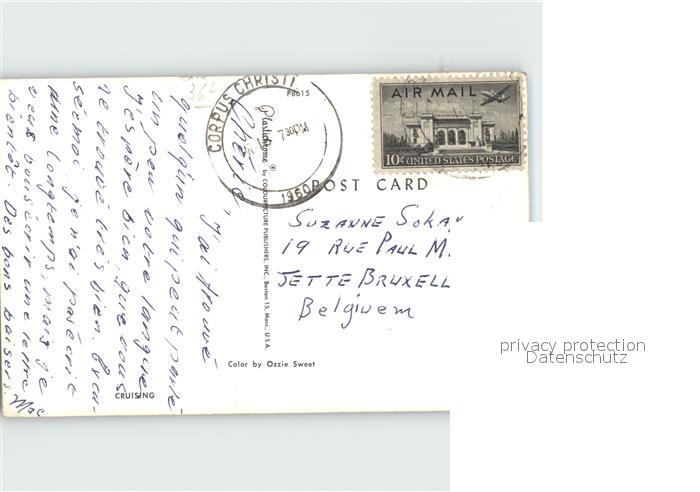 CORPUS CHRISTI
7 30 PM
1960
P8615
AIR MAIL
10¢ UNITED STATES POSTAGE
Plastichrome® by COLOURPICTURE PUBLISHERS, INC., Boston 15, Mass., U.S.A.
POST CARD
SUZANNE SOKA
19 RUE PAUL M.
JETTE BRUXELL
Belgivem
Chérie,
J'ai trouvé
quelqun qui peut parlé
un peu votre langue
J'espère bien, que vous
te trouvé très bien. Excu-
sée moi je n'ai pas écrit
une longtemps, mais je
veus vous écrir une lettre
bientôt. Des bons baisers.
Mac
Color by Ozzie Sweet
CRUISING
privacy protection
Datenschutz